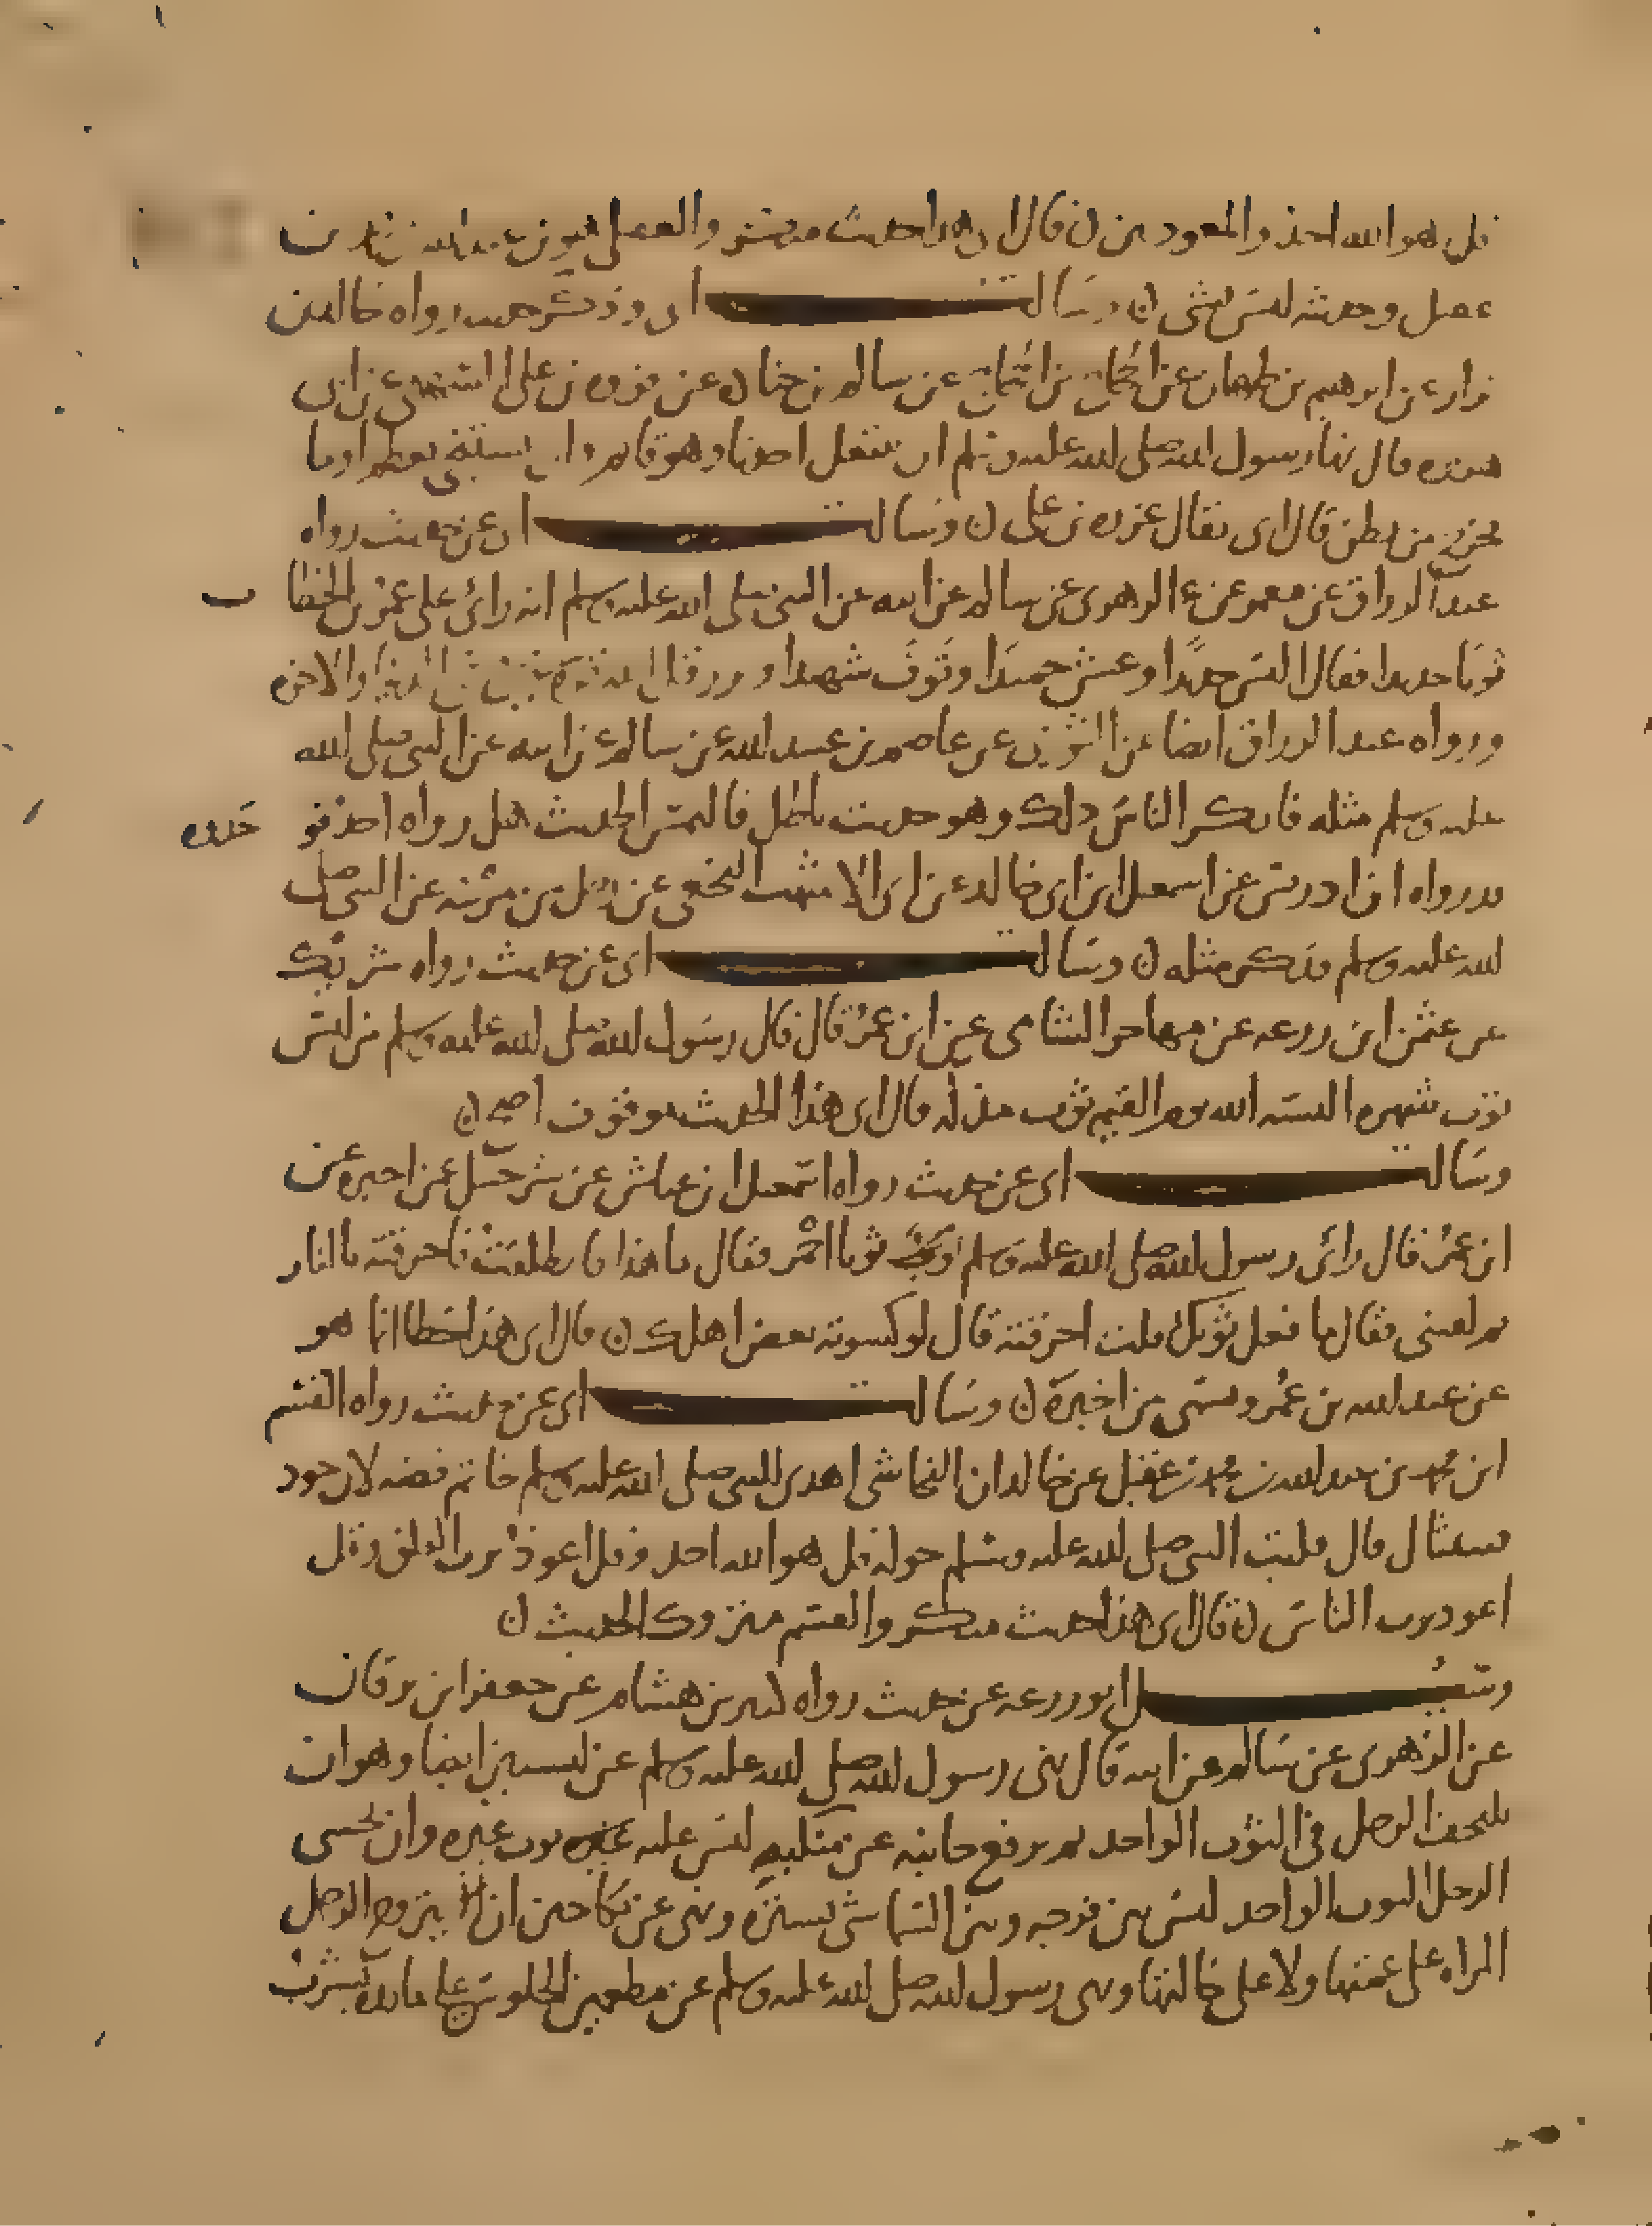 قل هو الله احد والمعوذتين ن قال ابي هذا حديث منكر والعمل فيه من عبد الله بن محمد بن
عقيل وحديثه ليس بشي ن وسالت ابي وذكر حديث رواه خالد بن
نزار عن ابرهيم بن طهمان عن الحجاج بن الحجاج عن سالم بن حنان عن عزره بن علي السهمي عن ابي
هريره قال نهانا رسول الله صلى الله عليه وسلم ان ينتعل احدنا وهو قايم وان يستنجي بعظم او ما
يخرج من بطن قال ابي يقال عزره بن علي ن وسالت ابي عن حديث رواه
عبد الرزاق عن معمر عن الزهري عن سالم عن ابيه عن النبي صلى الله عليه وسلم انه راى على عمر بن الخطاب
ثوبا جديدا فقال البس جديدا وعش حميدا وتوف شهيدا ويرزقك الله قرة عين في الدنيا والاخره
ورواه عبد الرزاق ايضا عن الثوري عن عاصم بن عبيد الله عن سالم عن ابيه عن النبي صلى الله
عليه وسلم مثله فانكر الناس ذلك وهو حديث باطل فالتمس الحديث هل رواه احد فوجدوه
قد رواه ابن ادريس عن اسمعيل ابن ابي خالد عن ابي الاشهب النخعي عن رجل من مزينه عن النبي صلى
الله عليه وسلم فذكر مثله ن وسالت ابي عن حديث رواه شريك
عن عثمن ابن زرعه عن مهاجر الشامي عن ابن عمر قال قال رسول الله صلى الله عليه وسلم من لبس
ثوب شهره البسه الله يوم القيمه ثوب مذله قال ابي هذا الحديث موقوف اصح ن
وسالت ابي عن حديث رواه اسمعيل ابن عياش عن شرحبيل عن اخبره عن
ابن عمر قال راى رسول الله صلى الله عليه وسلم وعلي ثوبا احمر فقال ما هذا فانطلقت فاحرقته بالنار
ثم لقيني فقال ما فعل ثوبك قلت احرقته قال لو كسوته بعض اهلك ن قال ابي هذا خطا انما هو
عن عبد الله بن عمرو وسمى من اخبره ن وسالت ابي عن حديث رواه القسم
ابن محمد بن عبد الله بن محمد بن عقيل عن خالد ان النجاشي اهدى للنبي صلى الله عليه وسلم خاتم فضه لان جود
سـسال قال فكتب النبي صلى الله عليه وسلم حوله قل هو الله احد وقل اعوذ برب الفلق وقل
اعوذ برب الناس ن قال ابي هذا حديث منكر والقسم متروك الحديث ن
وسيل ابو زرعه عن حديث رواه كثير بن هشام عن جعفر ابن برقان
عن الزهري عن سالم عن ابيه قال نهى رسول الله صلى الله عليه وسلم عن لبستين ايضا وهو ان
يلتحف الرجل في الثوب الواحد ثم يرفع جانبه عن منكبيه ليس عليه ثوب غيره وان يحتبي
الرجل الثوب الواحد ليس بين فرجه وبين السما شي يستره ونهى عن نكاحين ان يتزوج الرجل
المراه على عمتها ولا على خالتها ونهى رسول الله صلى الله عليه وسلم عن مطعمين الجلوس على مايده يشرب